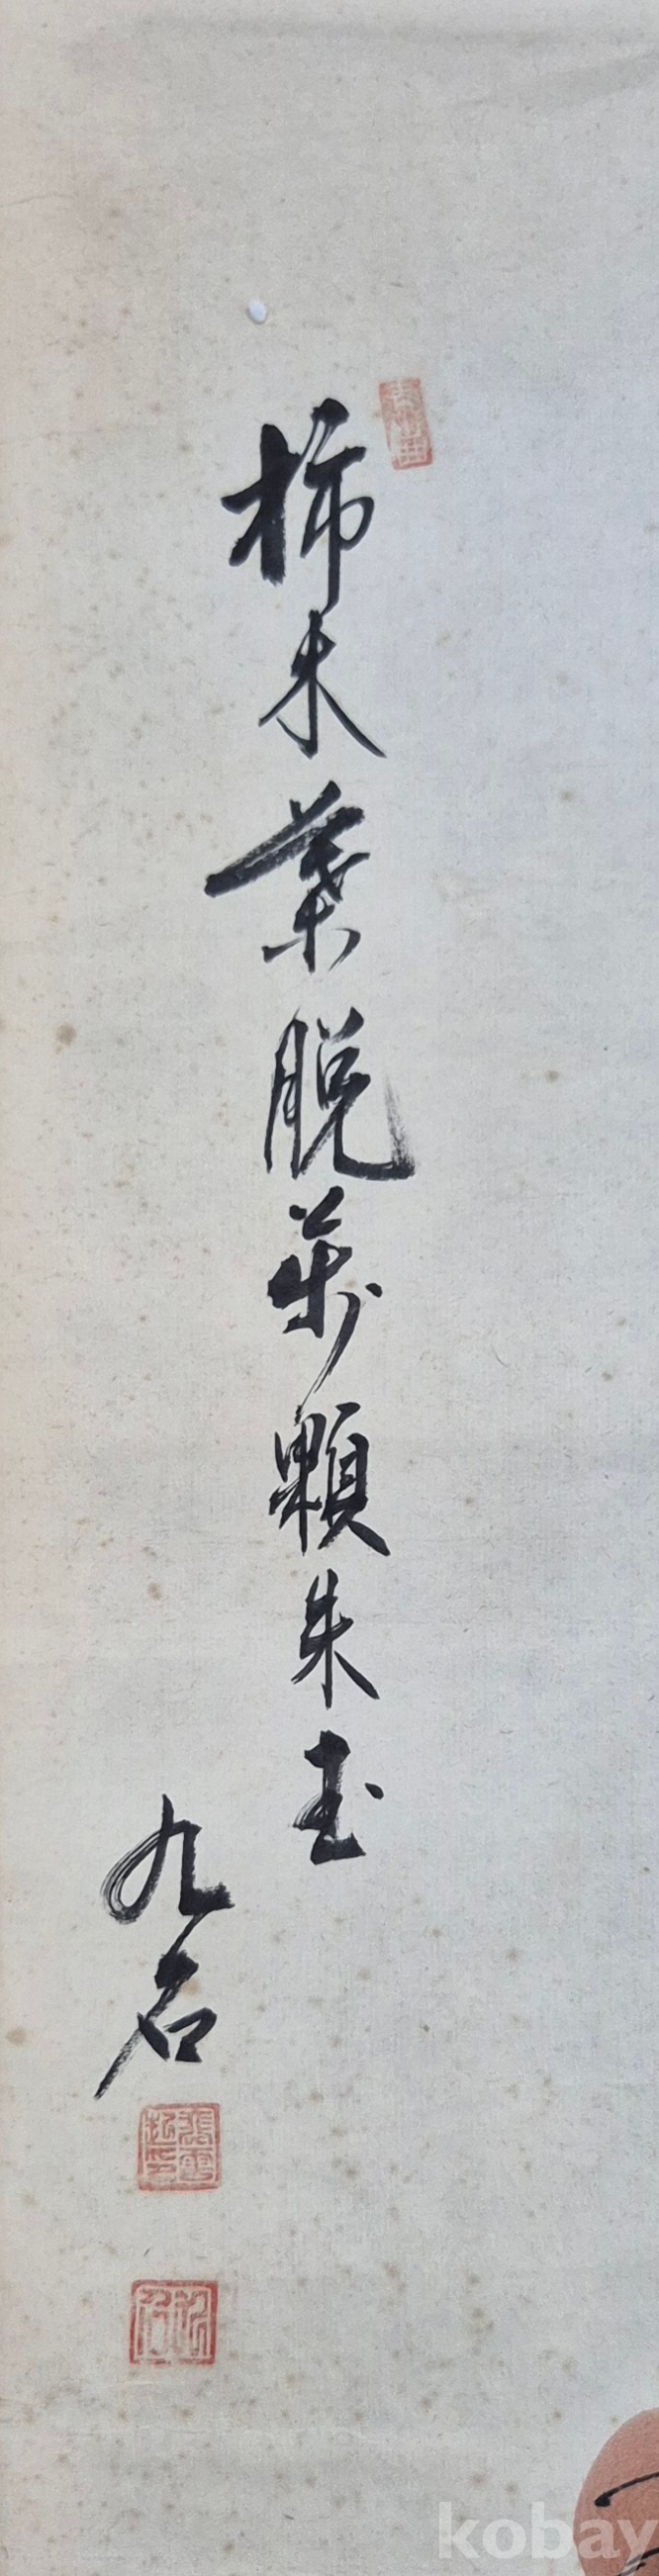 柿木葉脱萬顆朱玉
九石
kobay